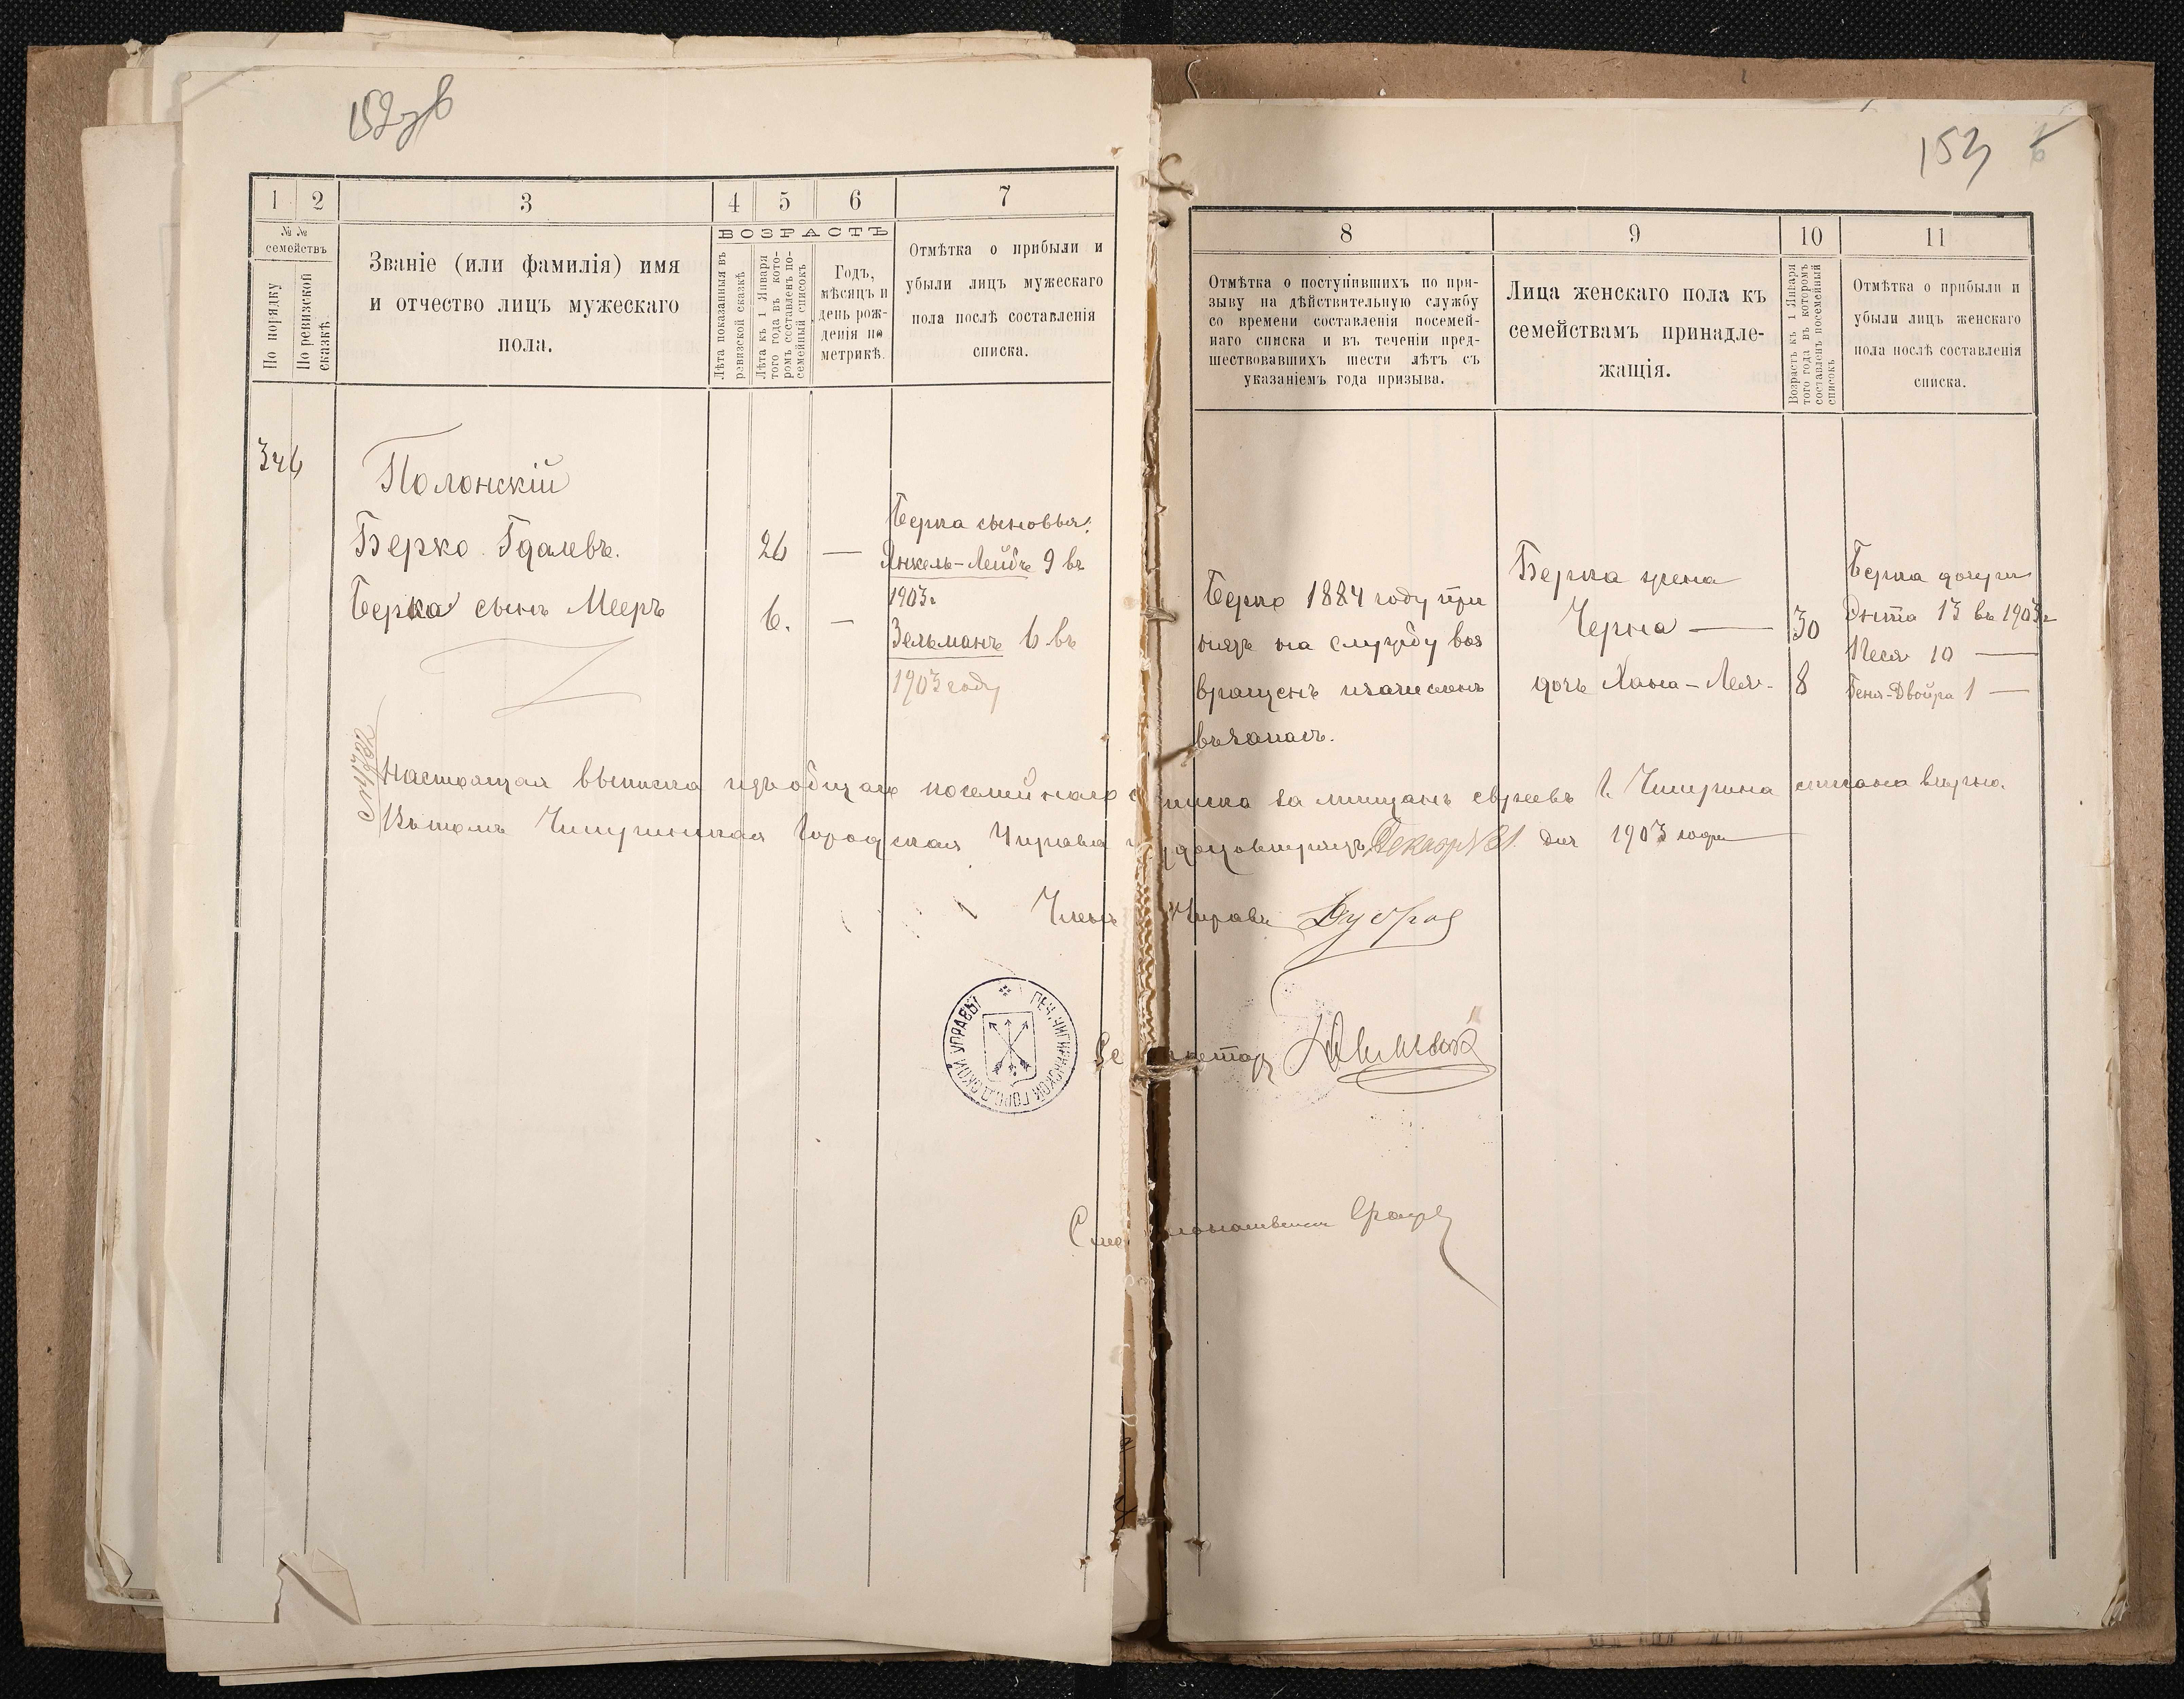 152об
1
2
3
4
5
6
7
№ №
семействъ
По порядку
По ревизской
сказкѣ.
Званіе (или фамилія) имя
и отчество лицъ мужескаго
пола.
ВОЗРАСТЪ
Лѣта показанныя въ
ревизской сказкѣ
Лѣта къ 1 Января
того года въ кото-
ромъ составленъ по-
семейный списокъ
Годъ,
мѣсяцъ и
день рож-
денія по
метрикѣ.
Отмѣтка о прибыли и
убыли лицъ мужескаго
пола послѣ составленія
списка.
Полонскій
Берко Гдалевъ.
26 —
Берка сынъ Мееръ
6. —
Берка сыновья:
Янкель-Лейбъ 9 въ
1903г
Зельманъ 6 въ
1903 году
153
8
9
10
11
Отмѣтка о поступившихъ по при-
зыву на дѣйствительную службу
со времени составленія посемей-
наго списка и въ теченіи пред-
шествовавшихъ шести лѣтъ съ
указаніемъ года призыва.
Лица женскаго пола къ
семействамъ принадле-
жащія.
Возрастъ къ 1 Января
того года въ которомъ
составленъ посемейный
списокъ
Отмѣтка о прибыли и
убыли лицъ женскаго
пола послѣ составленія
списка.
Берко 1884 году при
нятъ на службу воз
вращенъ и зачисленъ
въ запасъ.
Берка жена
Черна — 30
дочь Хана-Лея- 8
Берка дочери
13 въ 1903г
Песя 10 —
Геня-Двойра 1 —
Настоящая выписка изъ общаго посемейнаго списка за мѣщанъ евреевъ г. Чигирина списана вѣрно.
Въ томъ Чигиринская Городская Управа и удостовѣряетъ Декабря 31 дня 1903 года
Членъ Управы
ПЕЧ. ЧИГИРИНСКОЙ ГОРОДСКОЙ УПРАВЫ
Секретарь